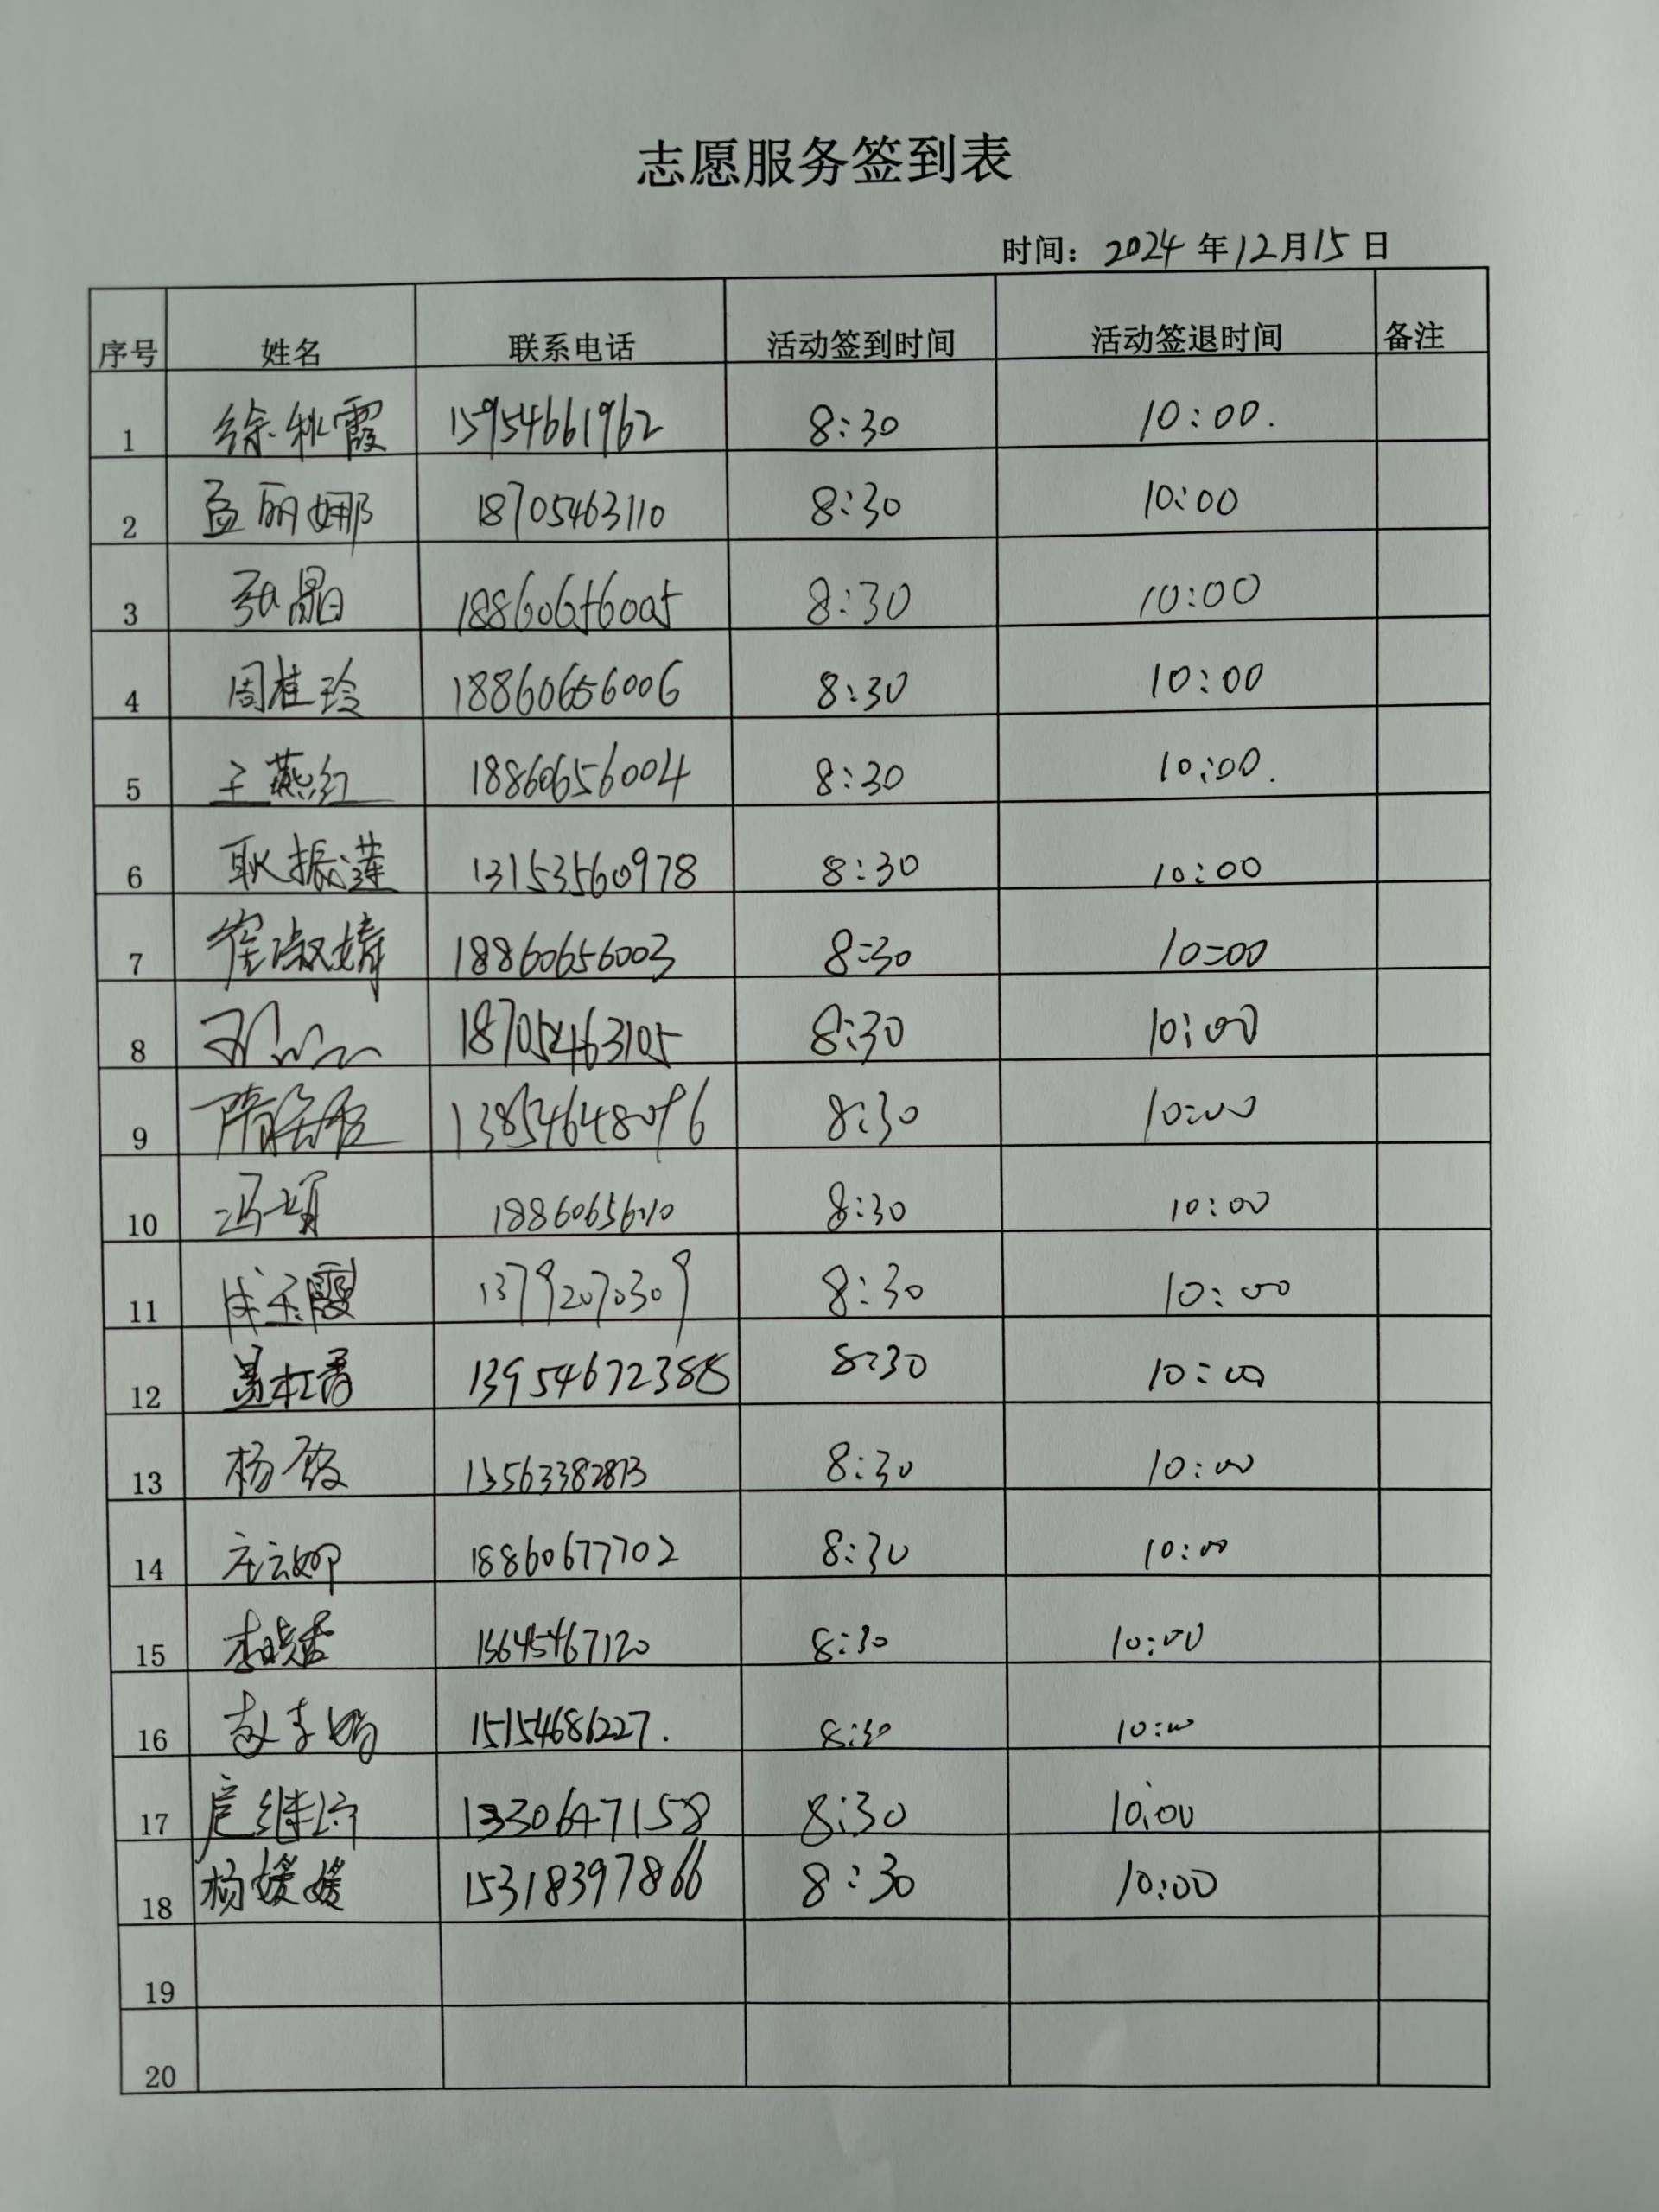 志愿服务签到表
时间：2024年12月15日
序号 姓名 联系电话 活动签到时间 活动签退时间 备注
1 徐秋霞 15954661962 8:30 10:00.
2 孟丽娜 18705463110 8:30 10:00
3 张晶 18860656005 8:30 10:00
4 周桂玲 18860656006 8:30 10:00
5 王燕红 18860656004 8:30 10:00.
6 耿振莲 13153560978 8:30 10:00
7 崔淑婧 18860656003 8:30 10:00
8 18705463105 8:30 10:00
9 隋 13854648096 8:30 10:00
10 冯娟 18860656010 8:30 10:00
11 成玉霞 13792070309 8:30 10:00
12 13954672388 8:30 10:00
13 杨 13563382873 8:30 10:00
14 18860677702 8:30 10:00
15 李晓香 13645467120 8:30 10:00
16 赵 15154686227. 8:30 10:00
17 扈继 1330647158 8:30 10:00
18 杨媛媛 15318397866 8:30 10:00
19
20